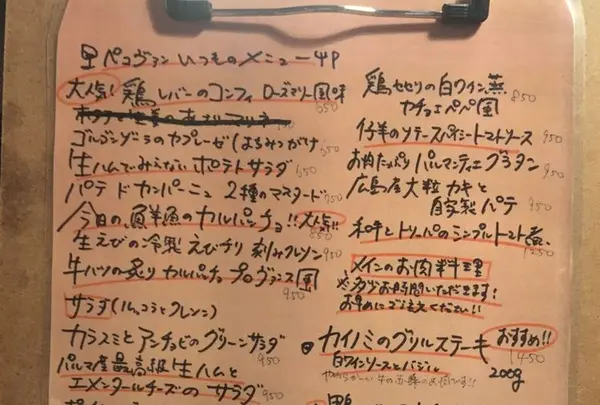 ペコヴァン いつものメニュー
大人気! 鶏レバーのコンフィ ローズマリー風味 650
ゴルゴンゾーラのカプレーゼ(はちみつがけ 650
生ハムでみえない ポテトサラダ 650
パテ ド カンパーニュ 2種のマスタード 750
今日の、鮮魚のカルパッチョ!!大人気!! 850
生えびの冷製 えびチリ 刻みクレソン 950
牛ハツの炙り カルパッチョ プロヴァンス風 950
サラダ(ルッコラとクレソン)
カラスミとアンチョビのグリーンサラダ 950
パルマ産最高級生ハムと
エメンタールチーズの サラダ 950
鶏セセリの白ワイン蒸
カチョエペペ風 850
仔羊のソテースパイシートマトソース 950
お肉たっぷり パルマンティエ グラタン 950
広島産大粒カキと
自家製パテ 950
和牛とトリッパのシンプルトマト煮
メインのお肉料理
※多少お時間いただきます!
お早めにご注文ください!!
カイノミのグリルステーキ おすすめ!! 1450
白ワインソースとバジル 200g